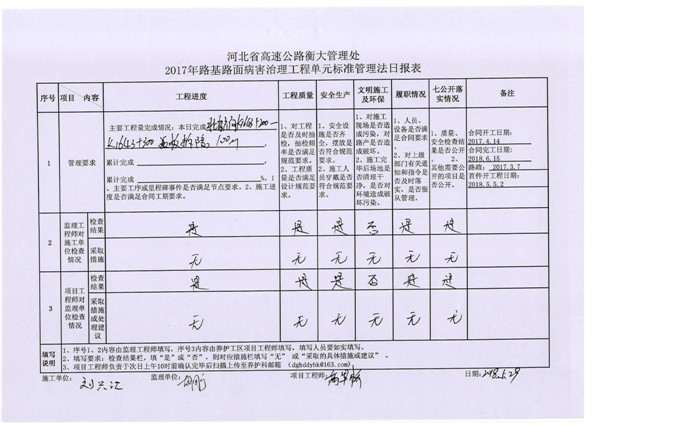 河北省高速公路衡大管理处
2017年路基路面病害治理工程单元标准管理法日报表
序号 项目 内容 工程进度 工程质量 安全生产 文明施工及环保 履职情况 七公开落实情况 备注
1 管理要求
主要工程量完成情况：本日完成
100m
累计完成
累计完成 %。1
、主要工序或里程碑事件是否满足节点要求。2、施工进
度是否满足合同工期要求。
1、对工程是否及时抽检，抽检频率是否满足规范要求。
2、工程质量是否满足设计规范要求。
1、安全设施是否齐全、摆放是否符合规范要求。
2、施工人员穿戴是否符合规范要求。
1、对施工现场是否造成污染，对路产是否造成破坏。
2、施工完毕后场地是否清理干净，是否对环境造成破坏污染。
1、人员、设备是否满足合同要求。
2、对上级部门有关通知和指令是否及时落实，是否服从管理。
1、质量、安全检查结果是否公开。
2、其他需要公开的项目是否公开。
合同开工日期：
2017.4.14
合同完工日期：
2018.6.15
路政：2017.3.7
首件开工日期：
2018.5.5.2
2 监理工程师对施工单位检查情况
检查结果 是 是 是 否 是 是
采取措施 无 无 无 无 无 无
3 项目工程师对监理单位检查情况
检查结果 是 是 是 否 是 是
采取措施或处理建议 无 无 无 无 无 无
填写说明
1、序号1、2内容由监理工程师填写，序号3内容由养护工区项目工程师填写，填写人员要如实填写。
2、填写要求：检查结果栏，填“是”或“否”，则对应措施栏填写“无”或“采取的具体措施或建议”。
3、项目工程师负责于次日上午10时前确认完毕后扫描上传至养护科邮箱（dghddyhk@163.com）
施工单位： 刘兴汇 监理单位： 项目工程师： 日期：2018.5.29